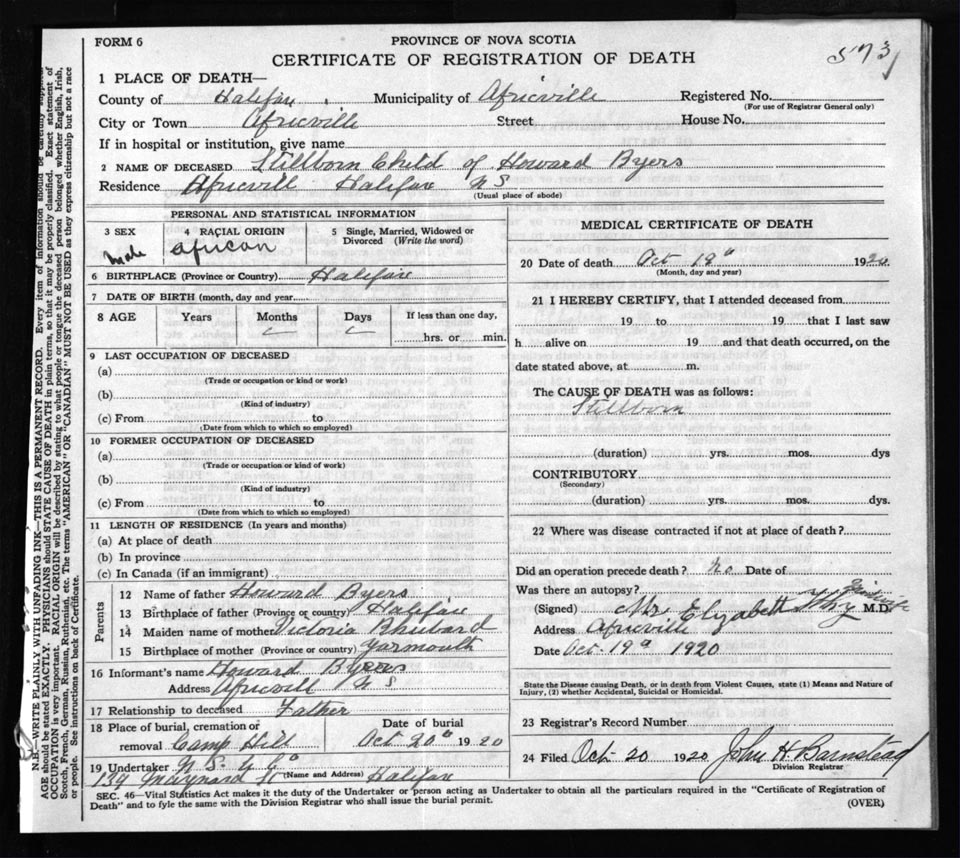 FORM 6
PROVINCE OF NOVA SCOTIA
CERTIFICATE OF REGISTRATION OF DEATH
573
1 PLACE OF DEATH—
County of Halifax Municipality of Africville Registered No.
(For use of Registrar General only)
City or Town Africville Street House No.
If in hospital or institution, give name
2 NAME OF DECEASED Stillborn Child of Howard Byers
Residence Africvill Halifax N S
(Usual place of abode)
PERSONAL AND STATISTICAL INFORMATION
3 SEX 4 RACIAL ORIGIN 5 Single, Married, Widowed or Divorced (Write the word)
Male african
6 BIRTHPLACE (Province or Country) Halifax
7 DATE OF BIRTH (month, day and year)
8 AGE Years Months Days If less than one day,
hrs. or min.
9 LAST OCCUPATION OF DECEASED
(a)
(Trade or occupation or kind or work)
(b)
(Kind of industry)
(c) From to
(Date from which to which so employed)
10 FORMER OCCUPATION OF DECEASED
(a)
(Trade or occupation or kind of work)
(b)
(Kind of industry)
(c) From to
(Date from which to which so employed)
11 LENGTH OF RESIDENCE (In years and months)
(a) At place of death
(b) In province
(c) In Canada (if an immigrant)
Parents
12 Name of father Howard Byers
13 Birthplace of father (Province or country) Halifax
14 Maiden name of mother Victoria Rhubard
15 Birthplace of mother (Province or country) Yarmouth
16 Informant's name Howard Byers
Address Africvill N S
17 Relationship to deceased Father
18 Place of burial, cremation or removal Camp Hill
Date of burial Oct 20th 1920
19 Undertaker N. S. U Co
(Name and Address)
139 Maynard St Halifax
MEDICAL CERTIFICATE OF DEATH
20 Date of death Oct 19th 1920
(Month, day and year)
21 I HEREBY CERTIFY, that I attended deceased from
19 to 19 that I last saw
h alive on 19 and that death occurred, on the
date stated above, at m.
The CAUSE OF DEATH was as follows:
Stillborn
(duration) yrs. mos. dys
CONTRIBUTORY
(Secondary)
(duration) yrs. mos. dys.
22 Where was disease contracted if not at place of death?
Did an operation precede death? no Date of
Was there an autopsy?
(Signed) Mrs Elizabeth M.D.
Address Africville
Date Oct. 19th 1920
State the Disease causing Death, or in death from Violent Causes, state (1) Means and Nature of
Injury, (2) whether Accidental, Suicidal or Homicidal.
23 Registrar's Record Number
24 Filed Oct 20 1920 John H Barnstead
Division Registrar
SEC. 46—Vital Statistics Act makes it the duty of the Undertaker or person acting as Undertaker to obtain all the particulars required in the "Certificate of Registration of
Death" and to fyle the same with the Division Registrar who shall issue the burial permit.
(OVER)
N.B.—WRITE PLAINLY WITH UNFADING INK—THIS IS A PERMANENT RECORD. Every item of information should be carefully supplied
AGE should be stated EXACTLY. PHYSICIANS should STATE CAUSE OF DEATH in plain terms, so that it may be properly classified. Exact statement of
OCCUPATION is very important. RACIAL ORIGIN will be described by stating to what people or tongue the deceased person belonged whether English, Irish,
Scotch, French, German, Russian, Ruthenian, etc. The terms "AMERICAN" OR "CANADIAN" MUST NOT BE USED as they express citizenship but not a race
or people. See instructions on back of Certificate.